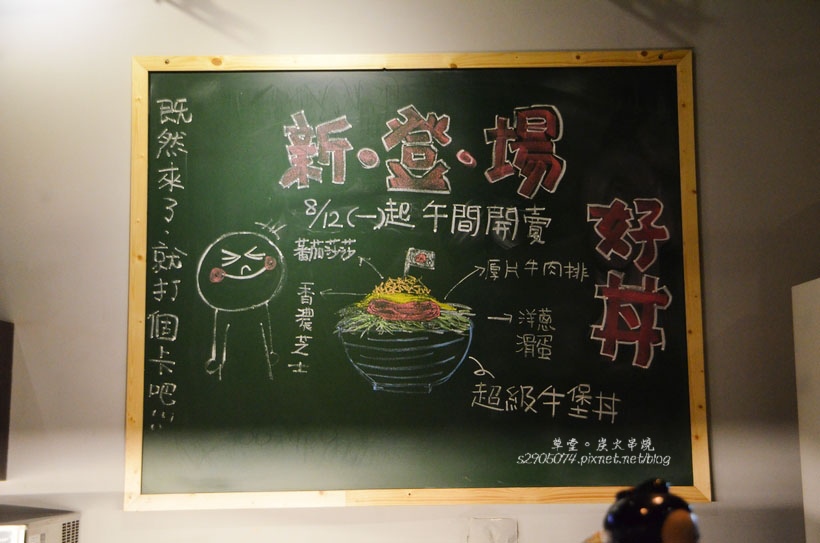 既然來了、就打個卡吧!!!
新·登·場
8/12(一)起 午間開賣
好丼
蕃茄莎莎
香濃芝士
厚片牛肉排
洋蔥
滑蛋
超級牛堡丼
草堂。炭火串燒
s2905074.pixnet.net/blog